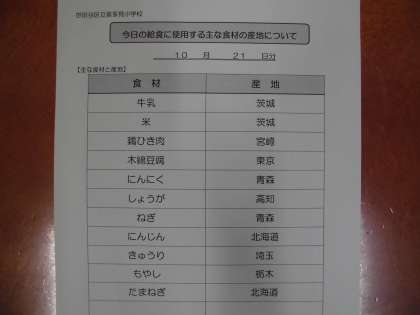 世田谷区立喜多見小学校
今日の給食に使用する主な食材の産地について
10 月 21 日分
【主な食材と産地】
食 材 産 地
牛乳 茨城
米 茨城
鶏ひき肉 宮崎
木綿豆腐 東京
にんにく 青森
しょうが 高知
ねぎ 青森
にんじん 北海道
きゅうり 埼玉
もやし 栃木
たまねぎ 北海道